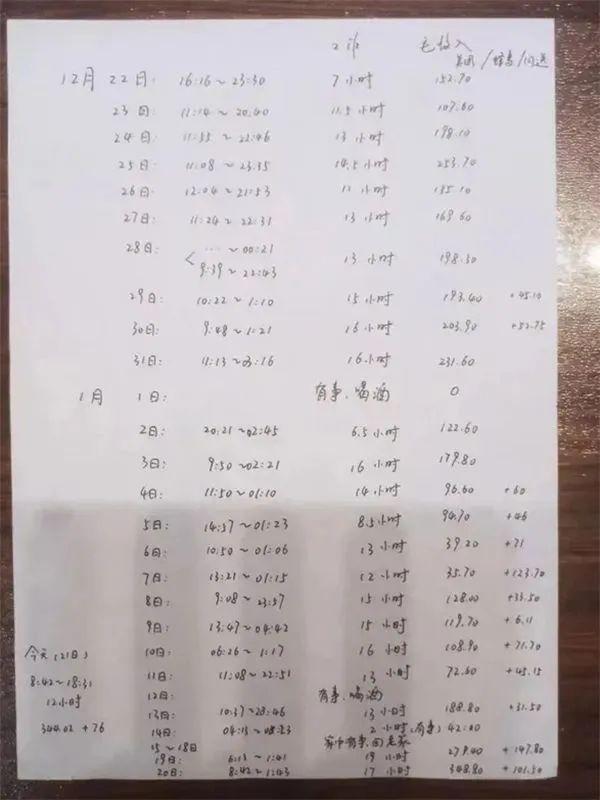 工作 毛收入
美团/蜂鸟/闪送
12月 22日: 16:16~23:30 7小时 152.70
23日: 11:14~20:40 11.5小时 107.60
24日: 11:55~22:46 13小时 198.10
25日: 11:08~23:35 14.5小时 253.70
26日: 12:04~21:53 11小时 135.10
27日: 11:24~22:31 13小时 169.60
28日: < ...~00:21
9:39~22:43 13小时 198.30
29日: 10:22~1:10 15小时 193.40 +45.10
30日: 9:48~1:21 16小时 203.90 +52.75
31日: 11:13~03:16 16小时 231.60
1月 1日: 有事、喝酒 0
2日: 20:21~02:45 6.5小时 122.60
3日: 9:50~02:21 16小时 179.80
4日: 11:50~01:10 14小时 96.60 +60
5日: 14:37~01:23 8.5小时 94.70 +46
6日: 10:50~01:06 13小时 39.20 +71
7日: 13:21~01:15 12小时 35.70 +123.70
8日: 9:08~23:57 15小时 128.00 +33.50
9日: 13:47~04:42 15小时 119.70 +6.11
10日: 06:26~1:17 16小时 108.90 +71.70
11日: 11:08~22:51 13小时 72.60 +45.15
12日: 有事、喝酒
13日: 10:37~23:46 13小时 188.80 +31.50
14日: 04:13~08:23 2小时(有事) 42.00
15~18日 家中有事,回老家
19日: 6:13~1:41 19小时 279.40 +147.80
20日: 8:42~1:43 17小时 348.80 +101.50
今天(21日)
8:42~18:31
12小时
344.02+76